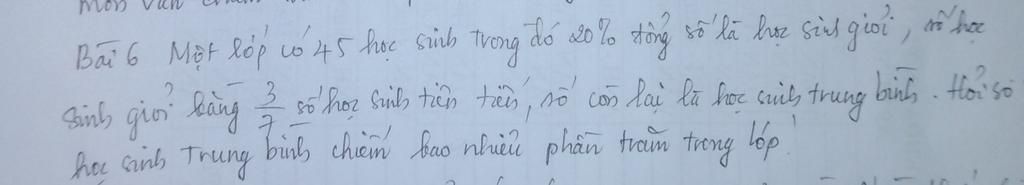 Môn Văn
Bài 6 Một lớp có 45 học sinh trong đó 20% tổng số là học sinh giỏi, số học
sinh giỏi bằng 3/7 số học sinh tiên tiến, số còn lại là học sinh trung bình. Hỏi số
học sinh Trung bình chiếm bao nhiêu phần trăm trong lớp!